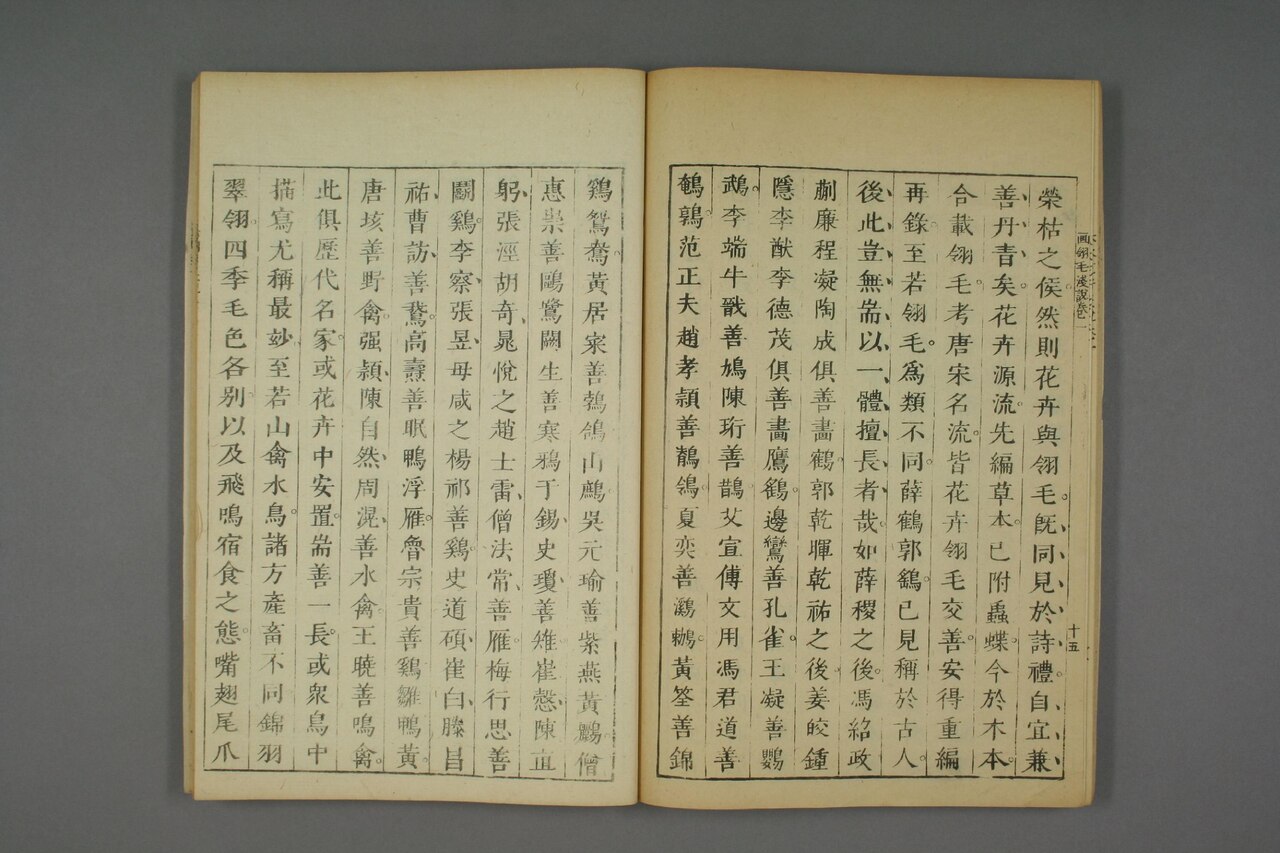 榮枯之俟然則花卉與翎毛既同見於詩禮自宜兼
善丹青矣花卉源流先編草本已附蟲蝶今於木本
合載翎毛考唐宋名流皆花卉翎毛交善安得重編
再錄至若翎毛爲類不同薛鶴郭鷂已見稱於古人
後此豈無耑以一體擅長者哉如薛稷之後馮紹政
蒯廉程凝陶成俱善畵鶴郭乾暉乾祐之後姜皎鍾
隱李猷李德茂俱善畵鷹鶴邊鸞善孔雀王凝善鸚
鵡李端牛戩善鳩陳珩善鵲艾宣傅文用馮君道善
鵪鶉范正夫趙孝頴善鶺鴒夏奕善鸂鶒黃筌善錦
鷄鴛鴦黃居寀善鵓鴿山鷓吳元瑜善紫燕黃鸝僧
惠崇善鷗鷺闕生善寒鴉于錫史瓊善雉崔慤陳直
躬張涇胡奇晁悅之趙士雷僧法常善雁梅行思善
鬬鷄李察張昱毋咸之楊祁善鷄史道碩崔白滕昌
祐曹訪善鵞高燾善眠鴨浮雁魯宗貴善鷄雛鴨黃
唐垓善野禽强頴陳自然周滉善水禽王曉善鳴禽
此俱歷代名家或花卉中安置耑善一長或衆鳥中
描寫尤稱最玅至若山禽水鳥諸方產畜不同錦羽
翠翎四季毛色各別以及飛鳴宿食之態嘴翅尾爪
画翎毛淺說卷一
十五